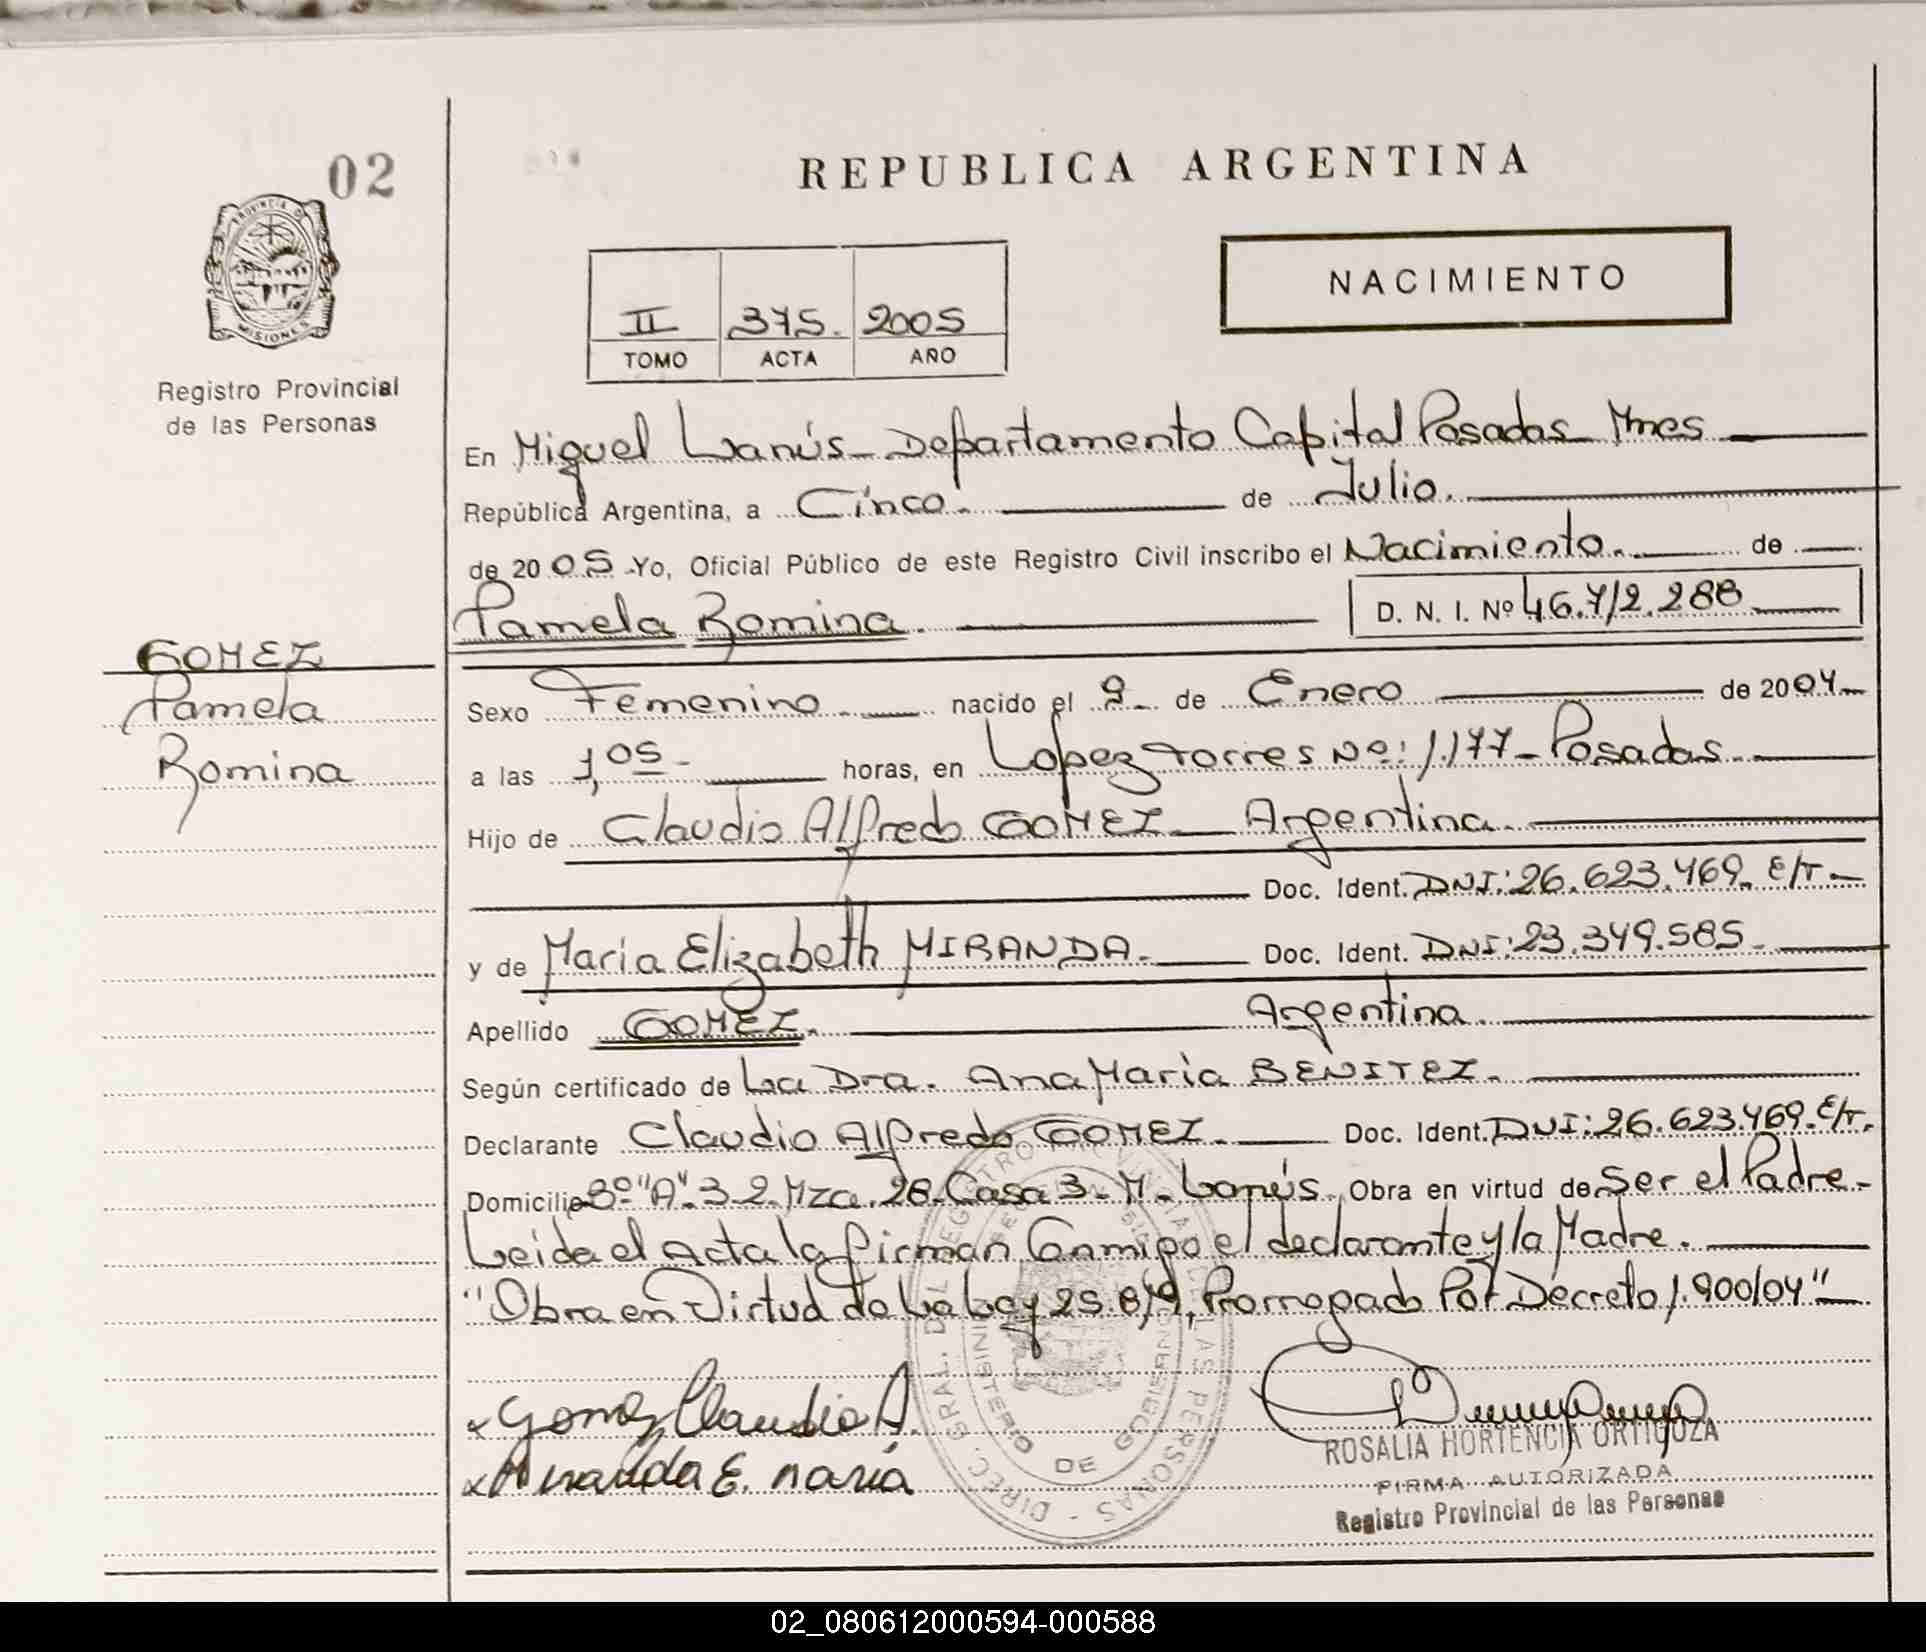 02
PROVINCIA DE
MISIONES
Registro Provincial
de las Personas
GOMEZ
Pamela
Romina
REPUBLICA ARGENTINA
NACIMIENTO
II 375. 2005
TOMO ACTA AÑO
En Miguel Lanús - Departamento Capital Posadas Mnes
República Argentina, a Cinco. de Julio.
de 2005 Yo, Oficial Público de este Registro Civil inscribo el Nacimiento. de
Pamela Romina. D. N. I. Nº 46.712.288
Sexo Femenino nacido el 9 de Enero de 2004
a las 1,05 horas, en Lopez Torres No: 1.177 - Posadas.
Hijo de Claudio Alfredo GOMEZ - Argentina.
Doc. Ident. DNI: 26.623.469. E/T.
y de Maria Elizabeth MIRANDA. Doc. Ident. DNI: 23.349.585
Apellido GOMEZ. Argentina.
Según certificado de La Dra. Ana Maria BENITEZ.
Declarante Claudio Alfredo GOMEZ. Doc. Ident. DNI: 26.623.469. E/T.
Domicilio Bº "A" 3-2 Mza. 28 Casa 3 - M. Lanús. Obra en virtud de Ser el Padre
Leida el Acta la firman Conmigo el declarante y la Madre.
"Obra en Virtud de La Ley 25.819, Prorrogado Por Decreto 1.900/04"
x Gomez Claudio A.
x Miranda E. Maria
DIREC. GRAL. DEL REGISTRO PROVINCIAL DE LAS PERSONAS
MINISTERIO DE GOBIERNO
ROSALIA HORTENCIA ORTIGOZA
FIRMA AUTORIZADA
Registro Provincial de las Personas
02_080612000594-000588